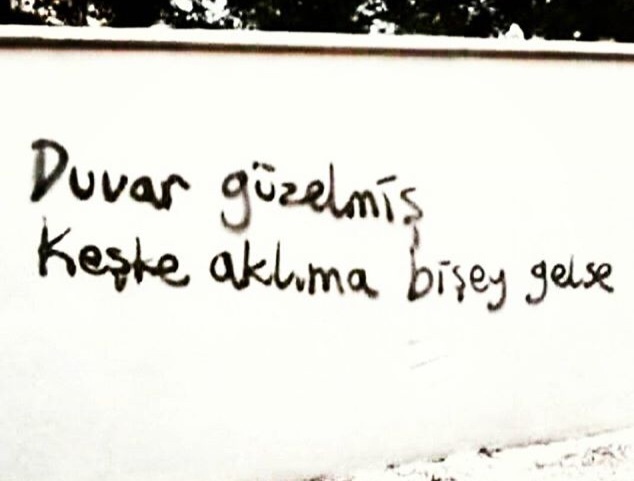 Duvar güzelmiş
Keşke aklıma bişey gelse